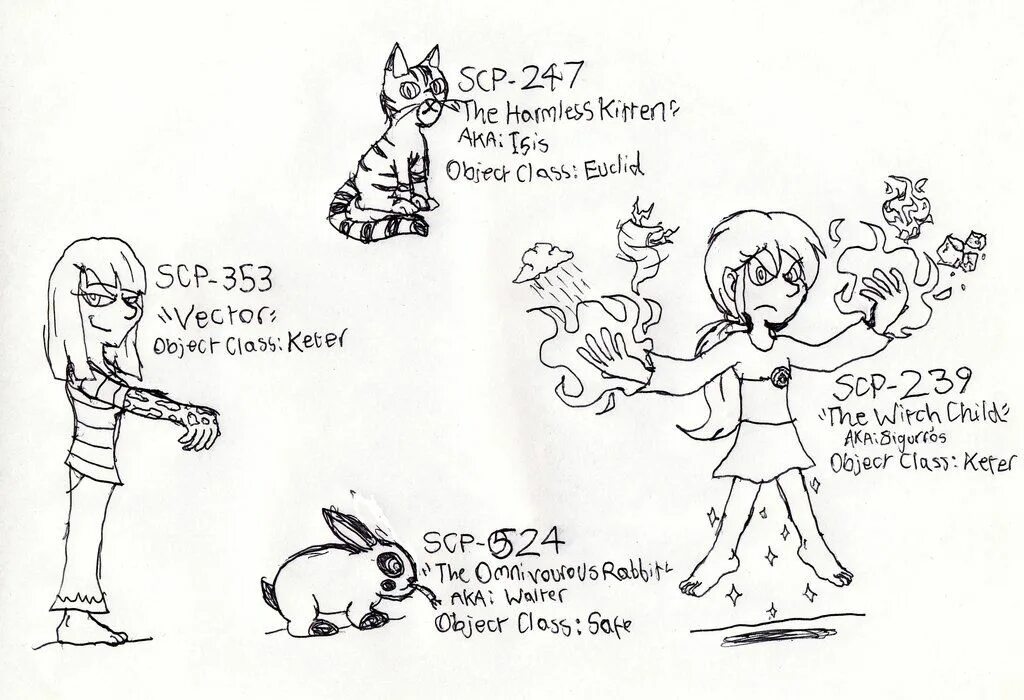 SCP-247
"The Harmless Kitten"
AKA: Isis
Object Class: Euclid
SCP-353
"Vector"
Object Class: Keter
SCP-239
"The Witch Child"
AKA: Sigurrós
Object Class: Keter
SCP-524
"The Omnivourous Rabbit"
AKA: Walter
Object Class: Safe